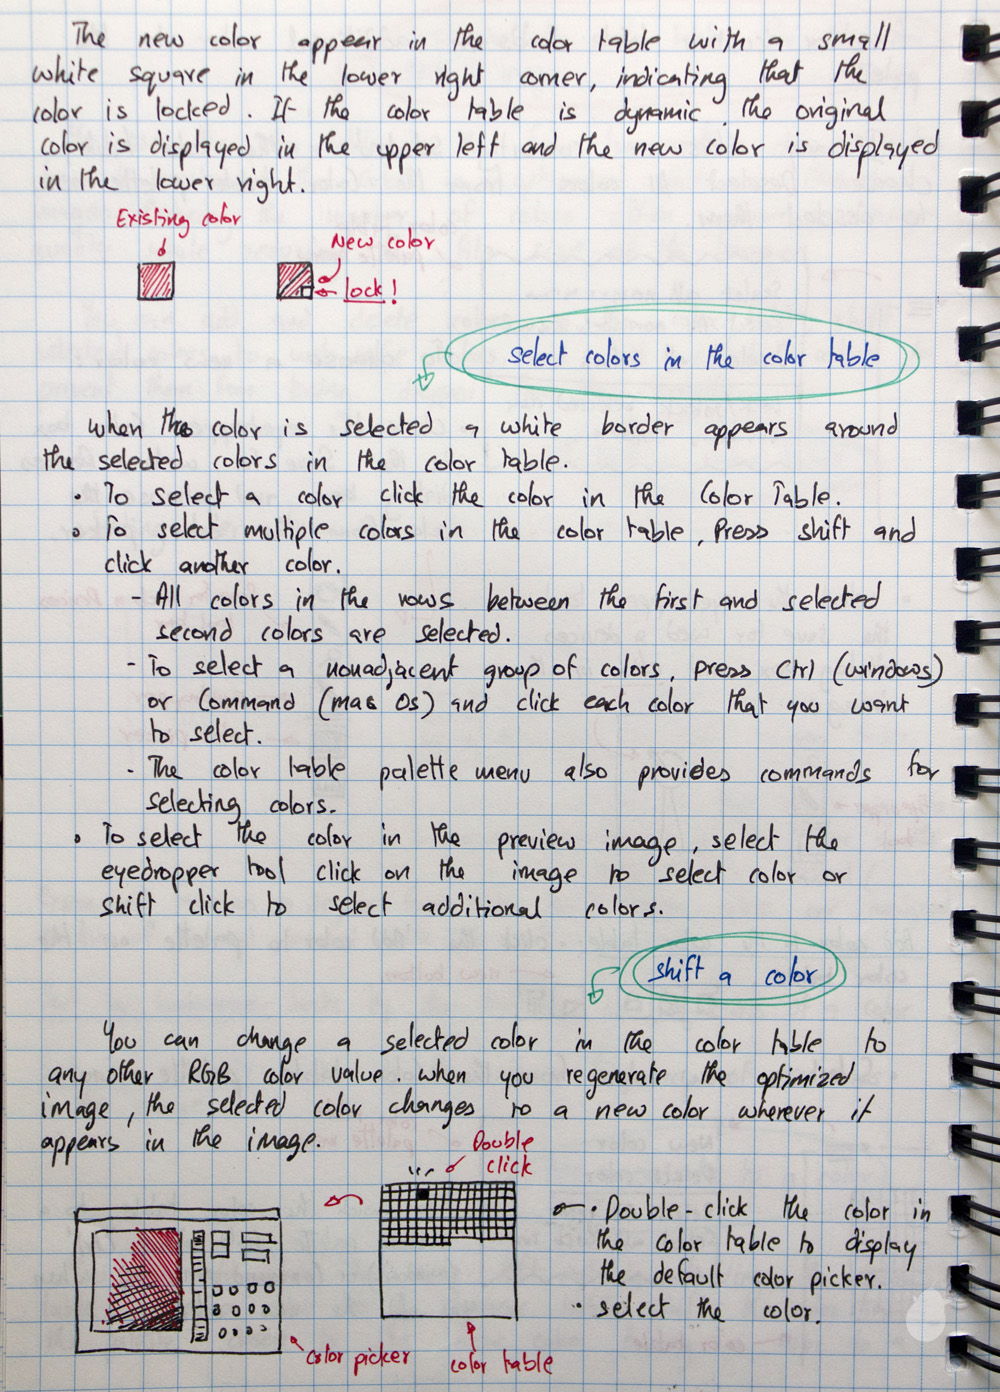 The new color appear in the color table with a small
white square in the lower right corner, indicating that the
color is locked. If the color table is dynamic, the original
color is displayed in the upper left and the new color is displayed
in the lower right.
Existing color
New color
lock!
select colors in the color table
when the color is selected a white border appears around
the selected colors in the color table.
• To select a color click the color in the Color Table.
• To select multiple colors in the color table, Press shift and
click another color.
- All colors in the rows between the first and selected
second colors are selected.
- To select a nonadjacent group of colors, press Ctrl (windows)
or Command (mac Os) and click each color that you want
to select.
- The color table palette menu also provides commands for
selecting colors.
• To select the color in the preview image, select the
eyedropper tool click on the image to select color or
shift click to select additional colors.
shift a color
You can change a selected color in the color table to
any other RGB color value. when you regenerate the optimized
image, the selected color changes to a new color wherever it
appears in the image.
Double
click
• Double-click the color in
the color table to display
the default color picker.
• select the color.
color picker
color table